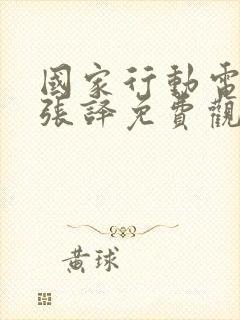 國家行動電
張譯免費觀
黃球